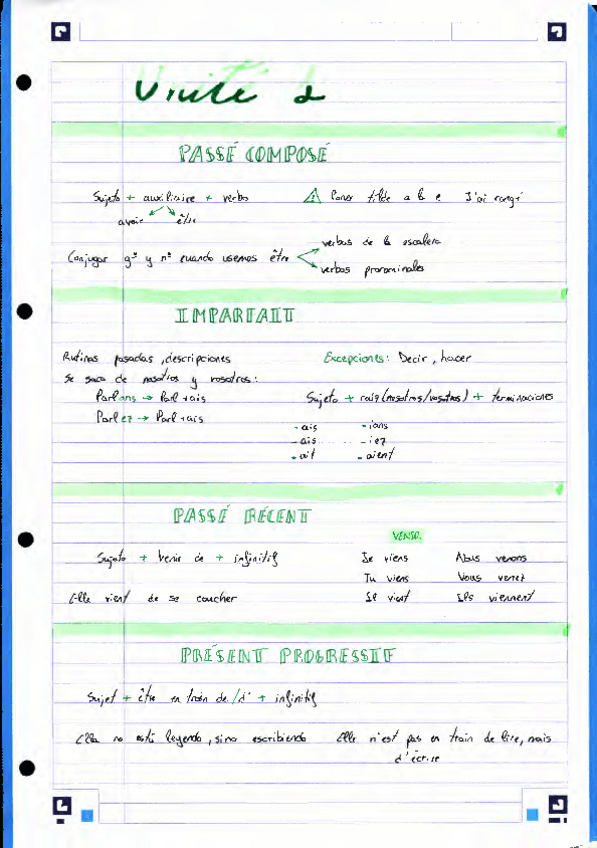 Unité 1
PASSÉ COMPOSÉ
Sujeto + auxiliaire + verbo
⚠ Poner tilde a la e J'ai rangé
avoir être
Conjugar gº y nº cuando usemos être
verbos de la escalera
verbos pronominales
IMPARFAIT
Rutinas pasadas, descripciones
Excepciones: Decir, hacer
Se saca de nosotros y vosotros:
Parlons → Parl + ais
Sujeto + raíz (nosotros/vosotros) + terminaciones
Parlez → Parl + ais
- ais - ions
- ais - iez
- ait - aient
PASSÉ RÉCENT
VENIR.
Sujeto + venir de + infinitif
Je viens Nous venons
Tu viens Vous venez
Elle vient de se coucher
Il vient Ils viennent
PRÉSENT PROGRESSIF
Sujet + être en train de/d' + infinitif
Ella no está leyendo, sino escribiendo
Elle n'est pas en train de lire, mais
d'écrire